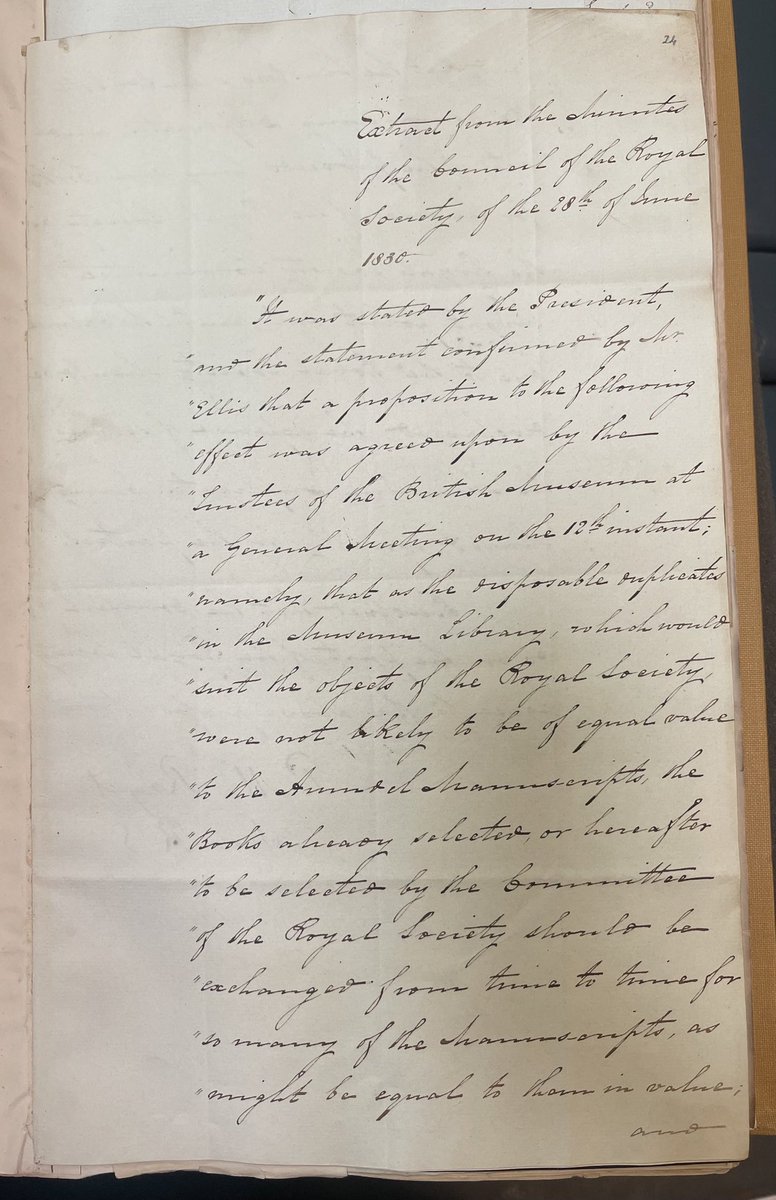 24
"Extract from the Minutes
of the Council of the Royal
Society, of the 28th of June
1830.
"It was stated by the President,
"and the statement confirmed by Mr.
"Ellis that a proposition to the following
"effect was agreed upon by the
"Trustees of the British Museum at
"a General Meeting on the 12th instant;
"namely, that as the disposable duplicates
"in the Museum Library, which would
"suit the objects of the Royal Society,
"were not likely to be of equal value
"to the Arundel Manuscripts, the
"Books already selected, or hereafter
"to be selected by the Committee
"of the Royal Society should be
"exchanged from time to time for
"so many of the Manuscripts, as
"might be equal to them in value;
and